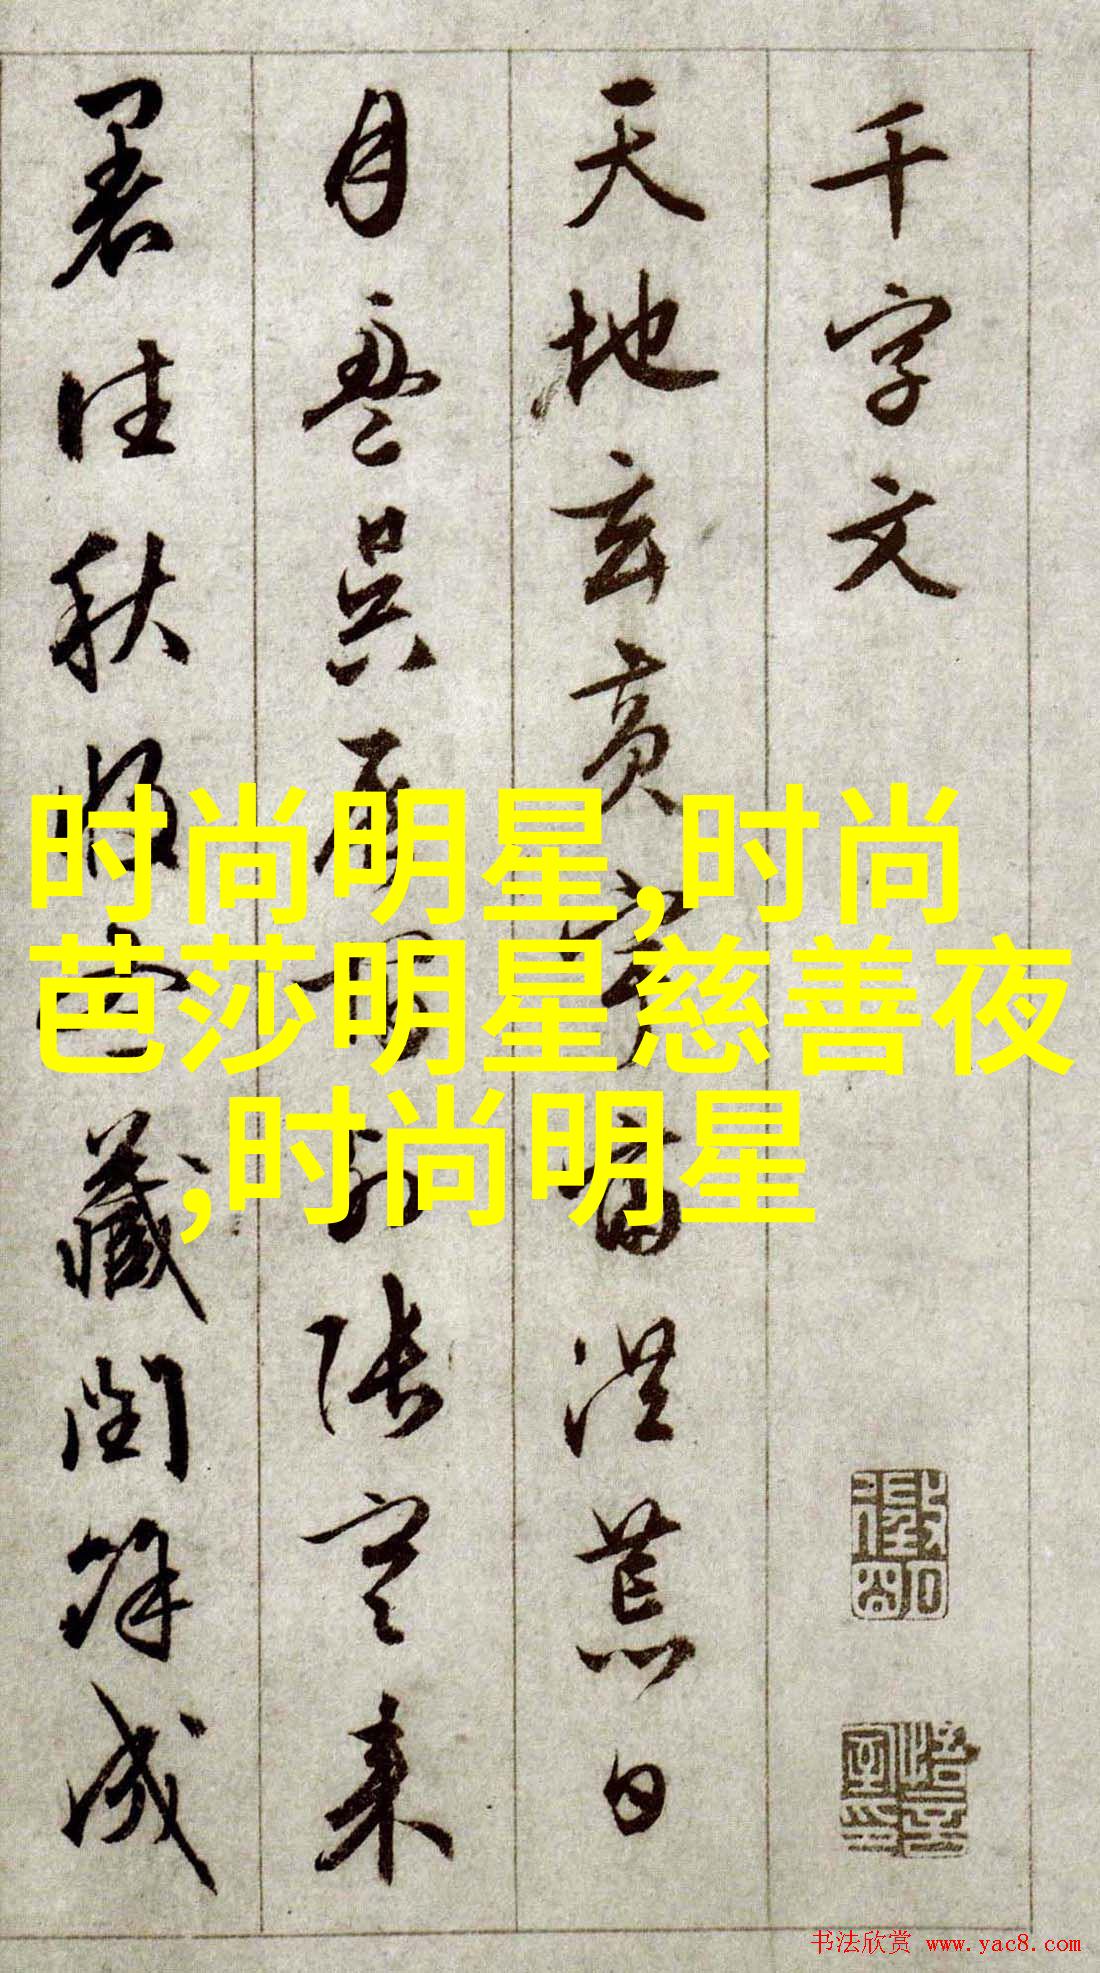 千字文
天地玄黄宇宙洪荒日
月盈昃辰宿列张寒来
暑往秋收冬藏闰余成
时尚明星,时尚
芭莎明星慈善夜
,时尚明星
书法欣赏 www.yac8.com